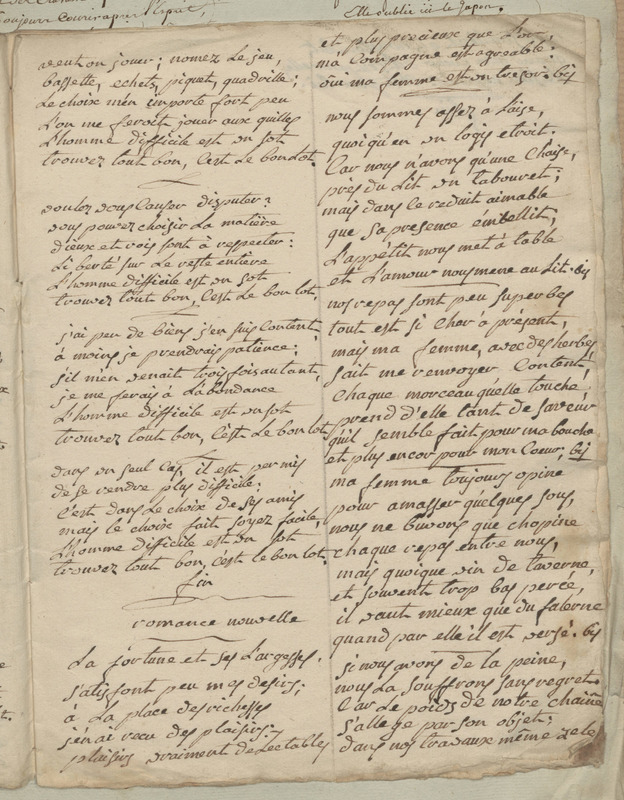 toujours courir après l'esprit,
Elle oublie ici le Japon.
veut on jouer; nomez le jeu,
bassette, echets, piquet, quadrille;
Le choix m'en importe fort peu
L'on me feroit jouer aux quilles
L'homme difficile est un sot
trouvez tout bon, C'est le bon lot.
voulez vous Causer disputer?
vous pouvez choisir La matière
dieux et rois sont à respecter:
Liberté sur le reste entière
L'homme difficile est un sot
trouvez tout bon, C'est le bon lot.
j'ai peu de biens j'en suis Content
à moins je prendrais patience;
s'il m'en venait trois fois autant,
je me ferais à L'abondance
L'homme difficile est un sot
trouvez tout bon, C'est Le bon lot
dans un seul Cas, il est permis
de se rendre plus difficile;
C'est dans Le choix de ses amis
mais le choix fait soyez facile,
L'homme difficile est un sot
trouvez tout bon, c'est le bon lot.
fin
romance nouvelle
La fortune et ses Largesses.
satisfont peu mes desirs;
à La place des richesses
j'en ai recu des plaisirs:
plaisirs vraiment delectables
et plus precieux que L'or:
ma Compagne est agreable:
oui ma femme est un tresor. bis
nous sommes assez à Laise,
quoiqu'en un logis etroit.
Car nous n'avons qu'une Chaise,
près du Lit un tabouret;
mais dans Ce reduit aimable
que sa presence embellit,
L'appétit nous met à table
et L'amour nous mene au Lit. bis
nos repas sont peu superbes
tout est si Cher à présent,
mais ma femme, avec des herbes,
sait me renvoyer Content,
Chaque morceau qu'elle touche
prend d'elle tant de saveur
qu'il semble fait pour ma bouche
et plus encor pour mon Coeur; bis
ma femme toujours opine
pour amasser quelques sous,
nous ne buvons que chopine
chaque repas entre nous,
mais quoique vin de taverne,
et souvent trop bas percé,
il vaut mieux que du falerne
quand par elle il est versé. bis
si nous avons de la peine,
nous La souffrons sans regret
Car Le poids de notre chaine
s'allege par son objet;
dans nos travaux même zele